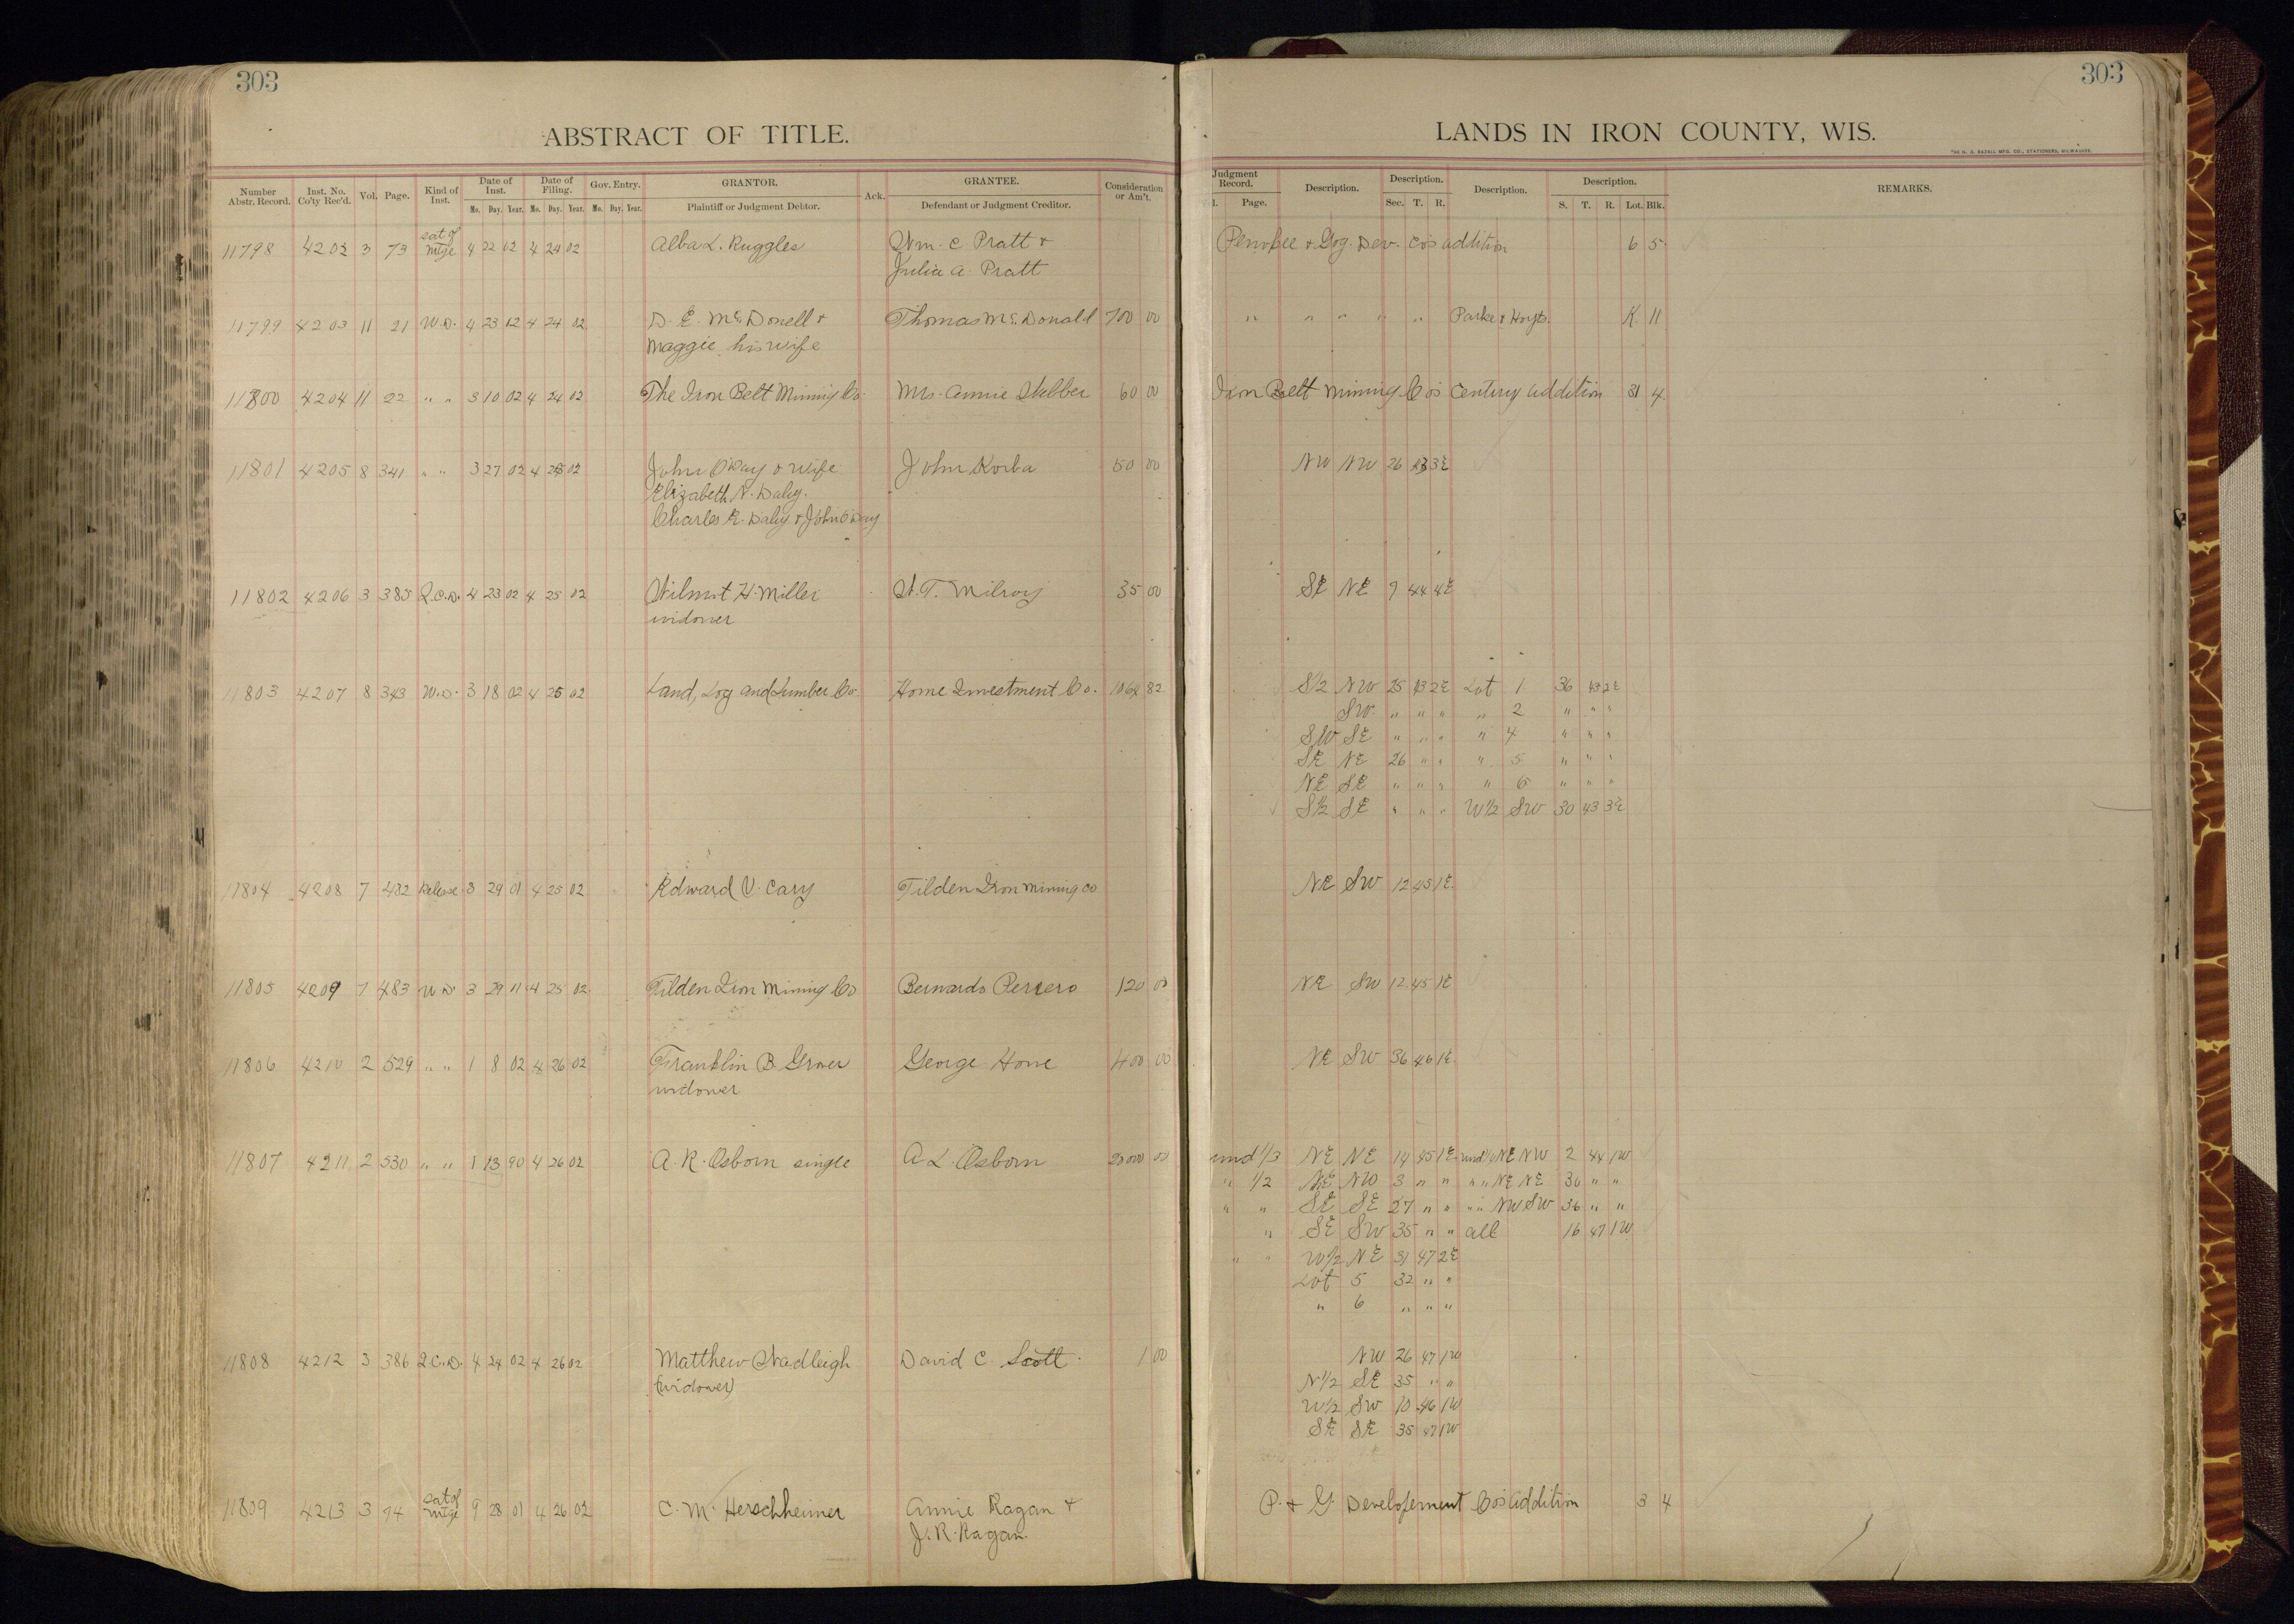 303
ABSTRACT OF TITLE.
Number Abstr. Record. Inst. No. Co'ty Rec'd. Vol. Page. Kind of Inst. Date of Inst. Date of Filing. Gov. Entry. GRANTOR. Ack. GRANTEE. Consideration or Am't.
Mo. Day. Year. Mo. Day. Year. Mo. Day. Year. Plaintiff or Judgment Debtor. Defendant or Judgment Creditor.
11798 4202 3 73 sat of mtge 4 22 02 4 24 02 Alba L. Ruggles Wm. C. Pratt &
Julia A. Pratt
11799 4203 11 21 W.D. 4 23 02 4 24 02 D. E. McDonell & Thomas McDonald 700 00
Maggie his wife
11800 4204 11 22 " " 3 10 02 4 24 02 The Iron Belt Mining Co. Mrs. Annie Webber 60 00
11801 4205 8 341 " " 3 27 02 4 25 02 John O'Day & wife John Korba 50 00
Elizabeth N. Daly.
Charles E. Daly & John O'Day
11802 4206 3 385 Q.C.D. 4 23 02 4 25 02 Wilmot H. Miller W. T. Milroy 35 00
widower
11803 4207 8 343 W.D. 3 18 02 4 25 02 Land, Log and Lumber Co. Home Investment Co. 1064 82
11804 4208 7 482 Release 3 29 01 4 25 02 Edward V. Cary Tilden Iron Mining Co
11805 4209 7 483 W.D. 3 29 11 4 25 02 Tilden Iron Mining Co Bernardo Perrero 120 00
11806 4210 2 529 " " 1 8 02 4 26 02 Franklin B. Grover George Hone 400 00
widower
11807 4211 2 530 " " 1 13 90 4 26 02 A. R. Osborn single A. L. Osborn 20000 00
11808 4212 3 386 Q.C.D. 4 24 02 4 26 02 Matthew Wadleigh David C. Scott 1 00
(widower)
11809 4213 3 74 sat of mtge 9 28 01 4 26 02 C. M. Herschheimer Annie Ragan &
J. R. Ragan.
303
LANDS IN IRON COUNTY, WIS.
THE H. G. RAZALL MFG. CO., STATIONERS, MILWAUKEE.
Judgment Record. Description. Description. Description. Description. REMARKS.
Page. Sec. T. R. S. T. R. Lot. Blk.
Penokee & Gog. Dev. Co's addition 6 5
" " " " " Parke & Hoyts. K 11
Iron Belt Mining Co's Century addition 31 4
NW NW 26 43 3E
SE NE 9 44 4E
S1/2 NW 25 43 2E Lot 1 36 43 2E
SW " " " " 2 " " "
SW SE " " " " 4 " " "
SE NE 26 " " " 5 " " "
NE SE " " " " 6 " " "
S1/2 SE " " " W1/2 SW 30 43 3E
NE SW 12 45 1E
NE SW 12 45 1E
NE SW 36 46 1E
und 1/3 NE NE 14 45 1E und 1/2 NE NW 2 44 1W
" 1/2 NE NW 3 " " " " NE NE 36 " "
" " SE SE 27 " " " " NW SW 36 " "
" SE SW 35 " " all 16 47 1W
" " W1/2 NE 31 47 2E
Lot 5 32 " "
" 6 " " "
NW 26 47 1W
N1/2 SE 35 " "
W1/2 SW 10 46 1W
SE SE 35 47 1W
P. & G. Development Co's addition 3 4